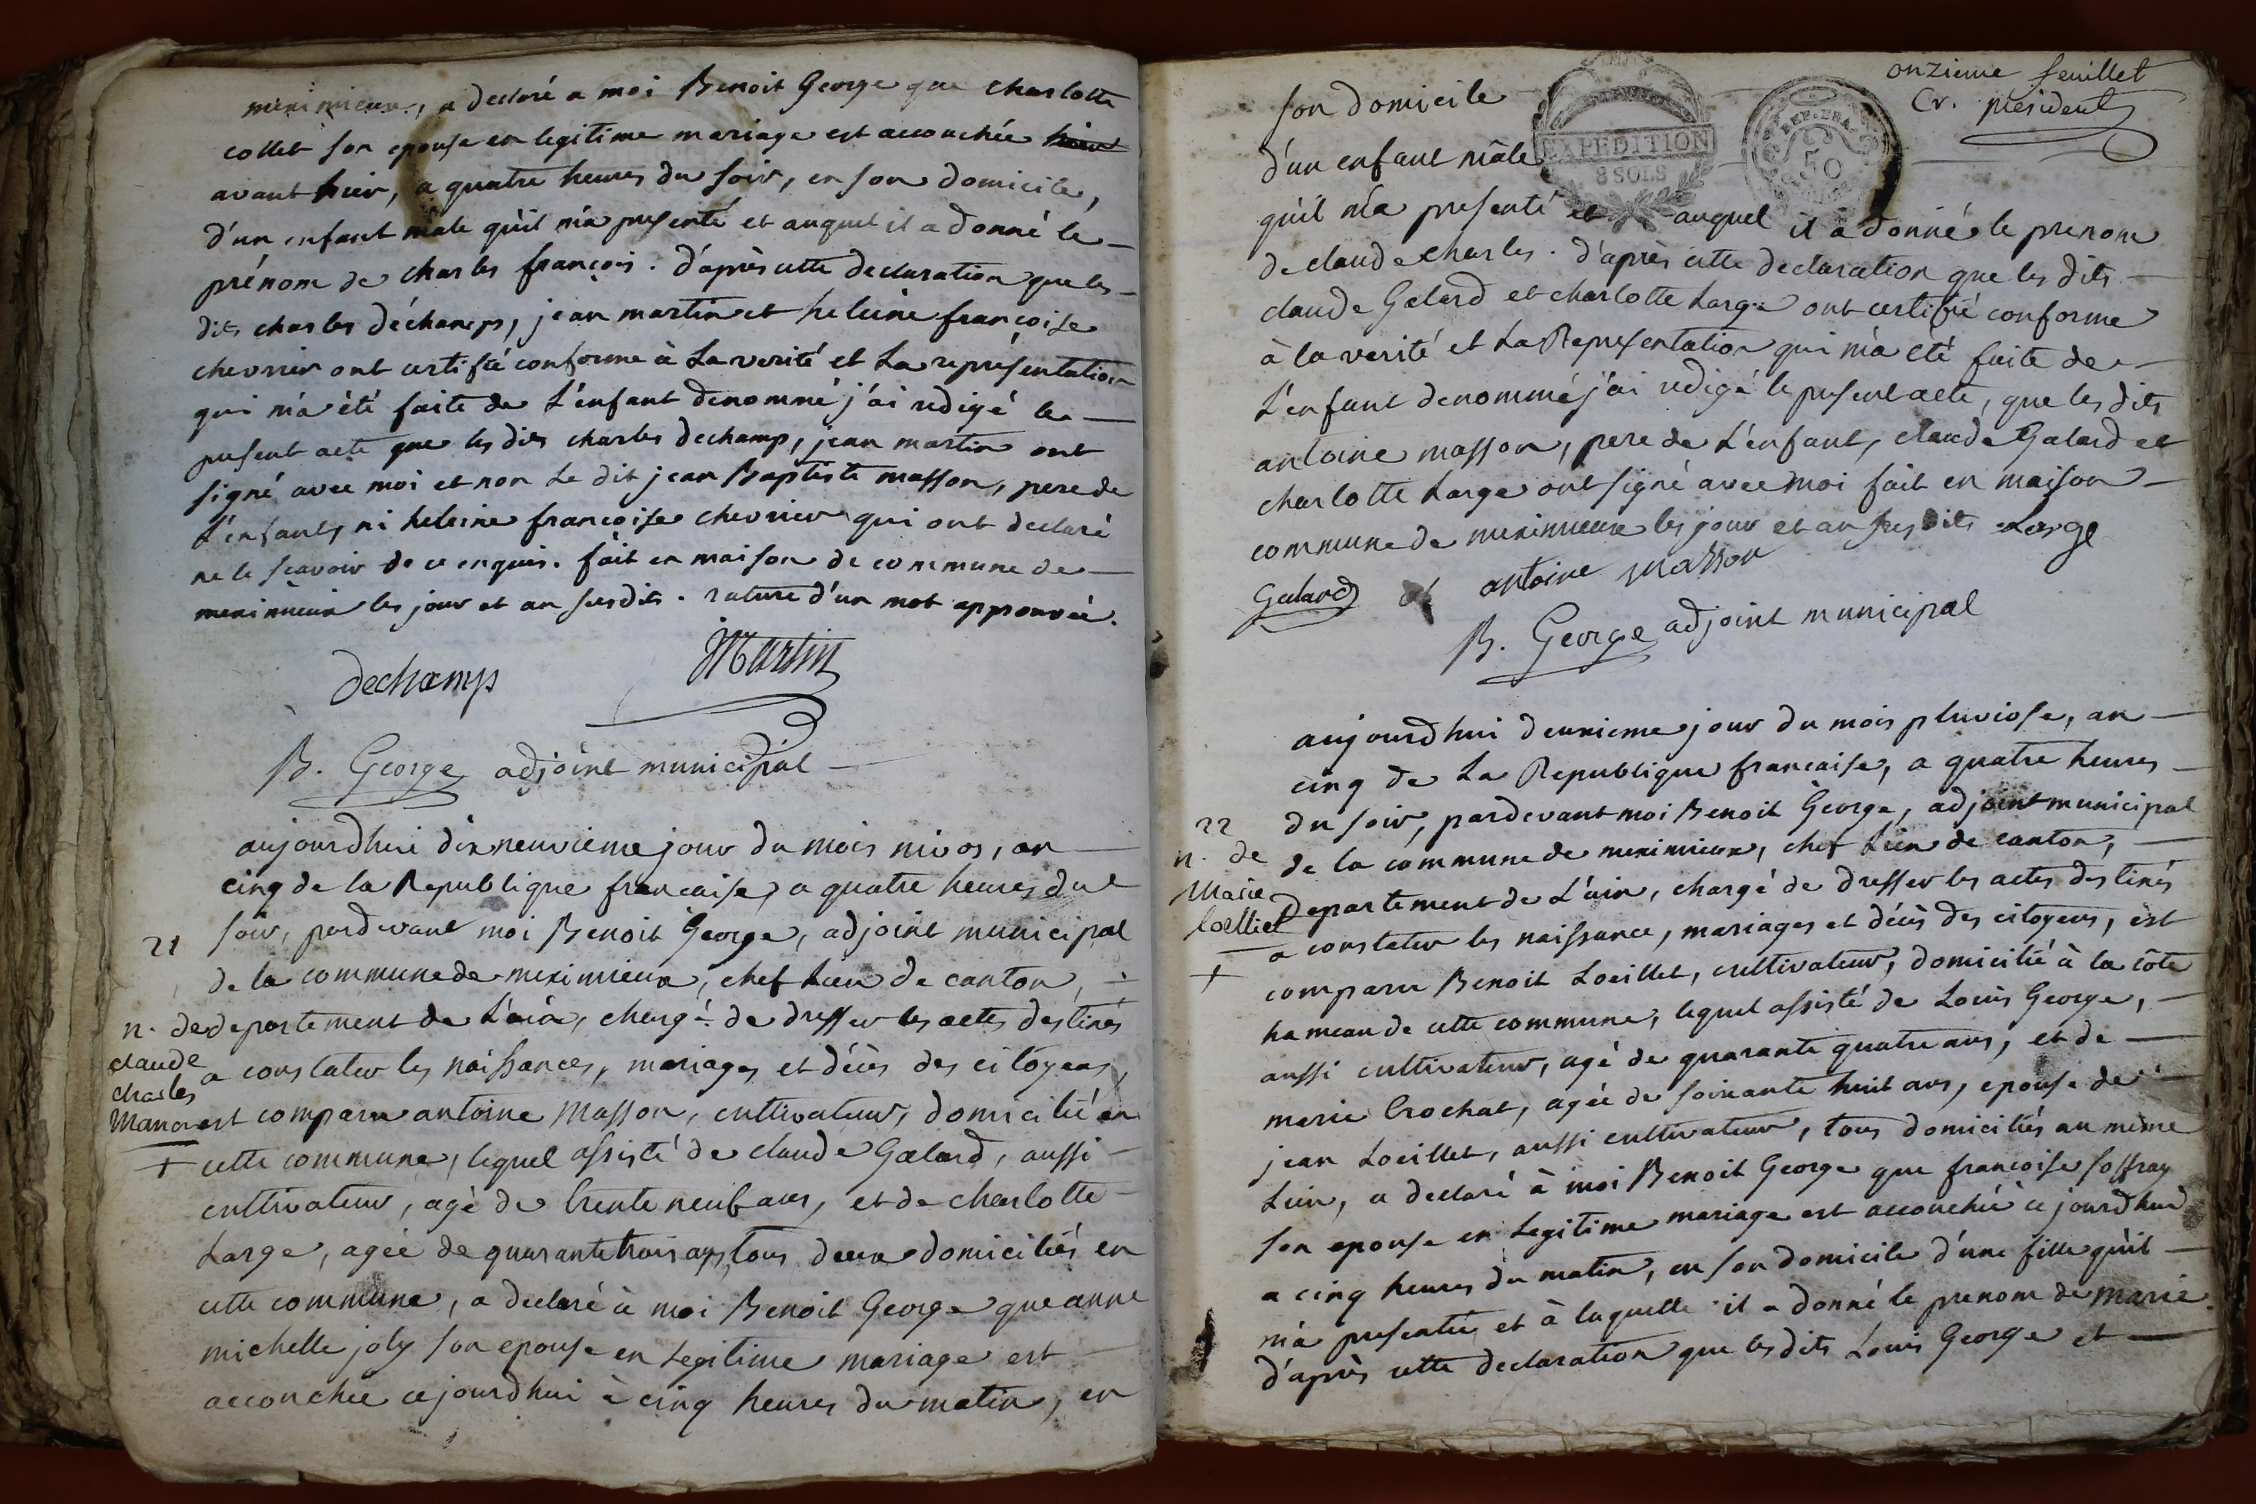 meximieux, a declaré a moi Benoit George que charlotte
collet son epouse en legitime mariage est accouchée hier
avant hier, a quatre heures du soir, en son domicile,
d'un enfant mâle qu'il m'a presenté et auquel il a donné le
prénom de charles françois. d'après cette declaration que les
dits charles déchamps, jean martin et heleine françoise
chevrier ont certifié conforme à La verité et La représentation
qui m'a été faite de L'enfant denommé j'ai redigé le
present acte que les dits charles dechamp, jean martin ont
signé avec moi et non Le dit jean Baptiste masson, pere de
L'enfant, ni heleine françoise chevrier qui ont declaré
ne le scavoir de ce enquis. fait en maison de commune de
meximieux les jour et an susdits. rature d'un mot approuvée.
Dechamps JMartin
B. George adjoint municipal
aujourdhui dix neuvieme jour du mois nivos, an
cinq de la Republique francaise, a quatre heures du
soir, pardevant moi Benoit George, adjoint municipal
21
de la commune de meximieux, chef Lieu de canton,
n. de departement de L'ain, chargé de dresser les actes destinés
claude
a constater les naissances, mariages et décès des citoyens,
charles
Masson est comparu antoine Masson, cultivateur, domicilié en
+ cette commune, lequel assisté de claude Galard, aussi
cultivateur, agé de trente neuf ans, et de charlotte
Large, agée de quarante trois ans, tous deux domiciliés en
cette commune, a declaré à moi Benoit George que anne
michelle joly son epouse en Legitime mariage est
accouchée cejourdhui à cinq heures du matin, en
onzieme feuillet
Cr. président
son domicile
EXPEDITION
8 SOLS
REP. FRA.
50
d'un enfant mâle
qu'il m'a presenté et auquel il a donné le prenom
de claude charles. d'après cette declaration que les dits
claude Galard et charlotte Large ont certifié conforme
à la verité et La Representation qui m'a été faite de
L'enfant denommé j'ai redigé le present acte, que les dits
antoine masson, pere de L'enfant, claude Galard et
charlotte Large ont signé avec moi fait en maison
commune de meximieux les jour et an susdits Large
Galard antoine masson
B. George adjoint municipal
aujourdhui deuxieme jour du mois pluviose, an
cinq de La Republique francaise, a quatre heures
du soir, pardevant moi Benoit George, adjoint municipal
22
n. de de la commune de meximieux, chef Lieu de canton,
Marie Departement de L'ain, chargé de dresser les actes destinés
Loeillet
a constater les naissance, mariages et décès des citoyens, est
+
comparu Benoit Loeillet, cultivateur, domicilié à la côte
hameau de cette commune, lequel assisté de Louis George,
aussi cultivateur, agé de quarante quatre ans, et de
marie Crochat, agée de soixante huit ans, epouse de
jean Loeillet, aussi cultivateur, tous domiciliés au même
Lieu, a declaré à moi Benoit George que françoise Soffray
son epouse en Legitime mariage est accouchée cejourdhui
a cinq heures du matin, en son domicile d'une fille qu'il
m'a presentée et à laquelle il a donné le prenom de Marie.
d'après cette declaration que les dits Louis George et